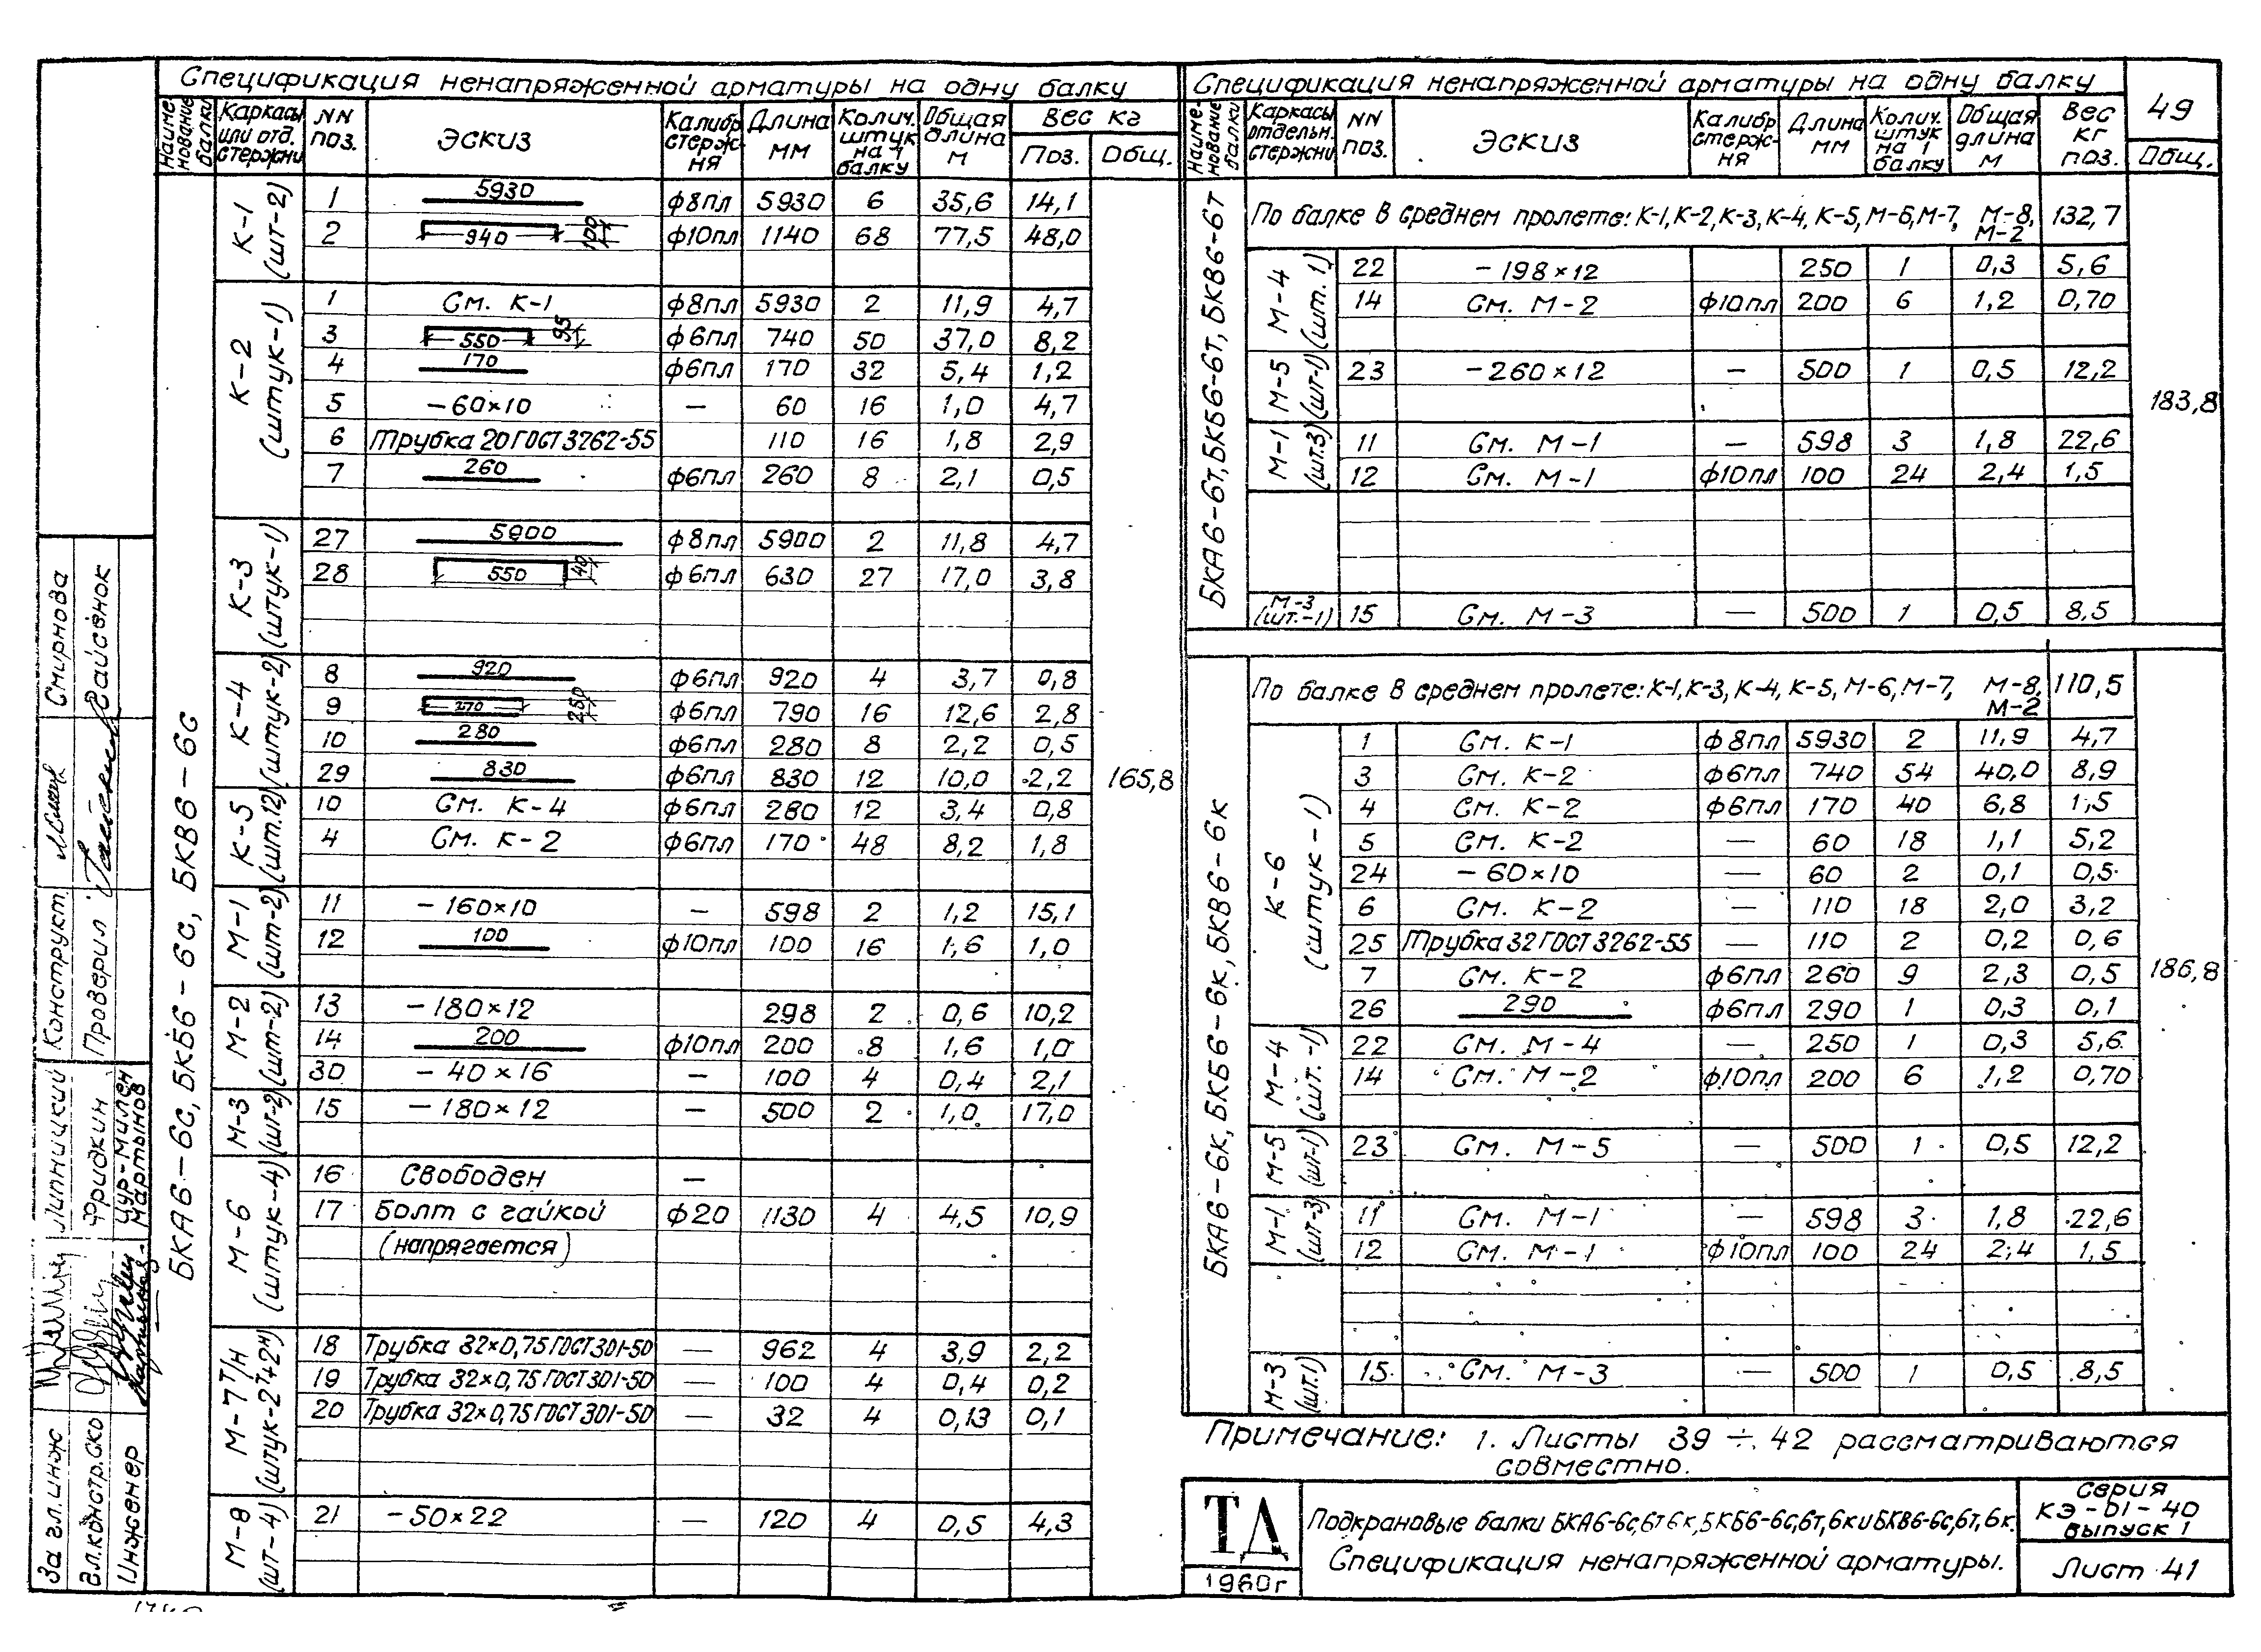 Спецификация ненапряженной арматуры на одну балку
Наиме-нование балки | Каркасы или отд. стержни | NN поз. | Эскиз | Калибр стерж-ня | Длина мм | Колич. штук на 1 балку | Общая длина м | Вес кг Поз. | Общ.
БКА6-6с, БКБ6-6с, БКВ6-6с
165,8
К-1 (шт-2)
1 5930 ф8пл 5930 6 35,6 14,1
2 940 100 ф10пл 1140 68 77,5 48,0
К-2 (штук-1)
1 См. К-1 ф8пл 5930 2 11,9 4,7
3 550 95 ф6пл 740 50 37,0 8,2
4 170 ф6пл 170 32 5,4 1,2
5 -60×10 — 60 16 1,0 4,7
6 Трубка 20 ГОСТ 3262-55 110 16 1,8 2,9
7 260 ф6пл 260 8 2,1 0,5
К-3 (штук-1)
27 5900 ф8пл 5900 2 11,8 4,7
28 550 40 ф6пл 630 27 17,0 3,8
К-4 (штук-2)
8 920 ф6пл 920 4 3,7 0,8
9 270 250 ф6пл 790 16 12,6 2,8
10 280 ф6пл 280 8 2,2 0,5
29 830 ф6пл 830 12 10,0 2,2
К-5 (шт.12)
10 См. К-4 ф6пл 280 12 3,4 0,8
4 См. К-2 ф6пл 170 48 8,2 1,8
М-1 (шт-2)
11 -160×10 — 598 2 1,2 15,1
12 100 ф10пл 100 16 1,6 1,0
М-2 (шт-2)
13 -180×12 298 2 0,6 10,2
14 200 ф10пл 200 8 1,6 1,0
30 -40×16 — 100 4 0,4 2,1
М-3 (шт-2)
15 -180×12 — 500 2 1,0 17,0
М-6 (штук-4)
16 Свободен —
17 Болт с гайкой ф20 1130 4 4,5 10,9
(напрягается)
М-7т/н (штук-2т+2н)
18 Трубка 32×0,75 ГОСТ 301-50 — 962 4 3,9 2,2
19 Трубка 32×0,75 ГОСТ 301-50 — 100 4 0,4 0,2
20 Трубка 32×0,75 ГОСТ 301-50 — 32 4 0,13 0,1
М-8 (шт-4)
21 -50×22 — 120 4 0,5 4,3
Спецификация ненапряженной арматуры на одну балку
49
Наиме-нование балки | Каркасы отдельн. стержни | NN поз. | Эскиз | Калибр стерж-ня | Длина мм | Колич. штук на 1 балку | Общая длина м | Вес кг поз. | Общ.
БКА6-6т, БКБ6-6т, БКВ6-6т
183,8
По балке в среднем пролете: К-1, К-2, К-3, К-4, К-5, М-6, М-7, М-8, М-2 132,7
М-4 (шт. 1)
22 -198×12 250 1 0,3 5,6
14 См. М-2 ф10пл 200 6 1,2 0,70
М-5 (шт-1)
23 -260×12 — 500 1 0,5 12,2
М-1 (шт.3)
11 См. М-1 — 598 3 1,8 22,6
12 См. М-1 ф10пл 100 24 2,4 1,5
М-3 (шт.-1)
15 См. М-3 — 500 1 0,5 8,5
БКА6-6к, БКБ6-6к, БКВ6-6к
186,8
По балке в среднем пролете: К-1, К-3, К-4, К-5, М-6, М-7, М-8, М-2 110,5
К-6 (штук-1)
1 См. К-1 ф8пл 5930 2 11,9 4,7
3 См. К-2 ф6пл 740 54 40,0 8,9
4 См. К-2 ф6пл 170 40 6,8 1,5
5 См. К-2 — 60 18 1,1 5,2
24 -60×10 — 60 2 0,1 0,5
6 См. К-2 — 110 18 2,0 3,2
25 Трубка 32 ГОСТ 3262-55 — 110 2 0,2 0,6
7 См. К-2 ф6пл 260 9 2,3 0,5
26 290 ф6пл 290 1 0,3 0,1
М-4 (шт.-1)
22 См. М-4 — 250 1 0,3 5,6
14 См. М-2 ф10пл 200 6 1,2 0,70
М-5 (шт-1)
23 См. М-5 — 500 1 0,5 12,2
М-1 (шт-3)
11 См. М-1 — 598 3 1,8 22,6
12 См. М-1 ф10пл 100 24 2,4 1,5
М-3 (шт.1)
15 См. М-3 — 500 1 0,5 8,5
Примечание: 1. Листы 39 ÷ 42 рассматриваются
совместно.
ТД
1960г
Подкрановые балки БКА6-6с,6т,6к,БКБ6-6с,6т,6к и БКВ6-6с,6т,6к.
Спецификация ненапряженной арматуры.
серия
КЭ-01-40
выпуск 1
Лист 41
За гл.инж Липницкий
Вл.констр.ско Фридкин
Инженер Мартынов
Конструкт. Смирнова
Проверил